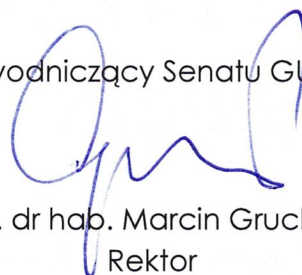 wodniczący Senatu GU
. dr hab. Marcin Gruch
Rektor